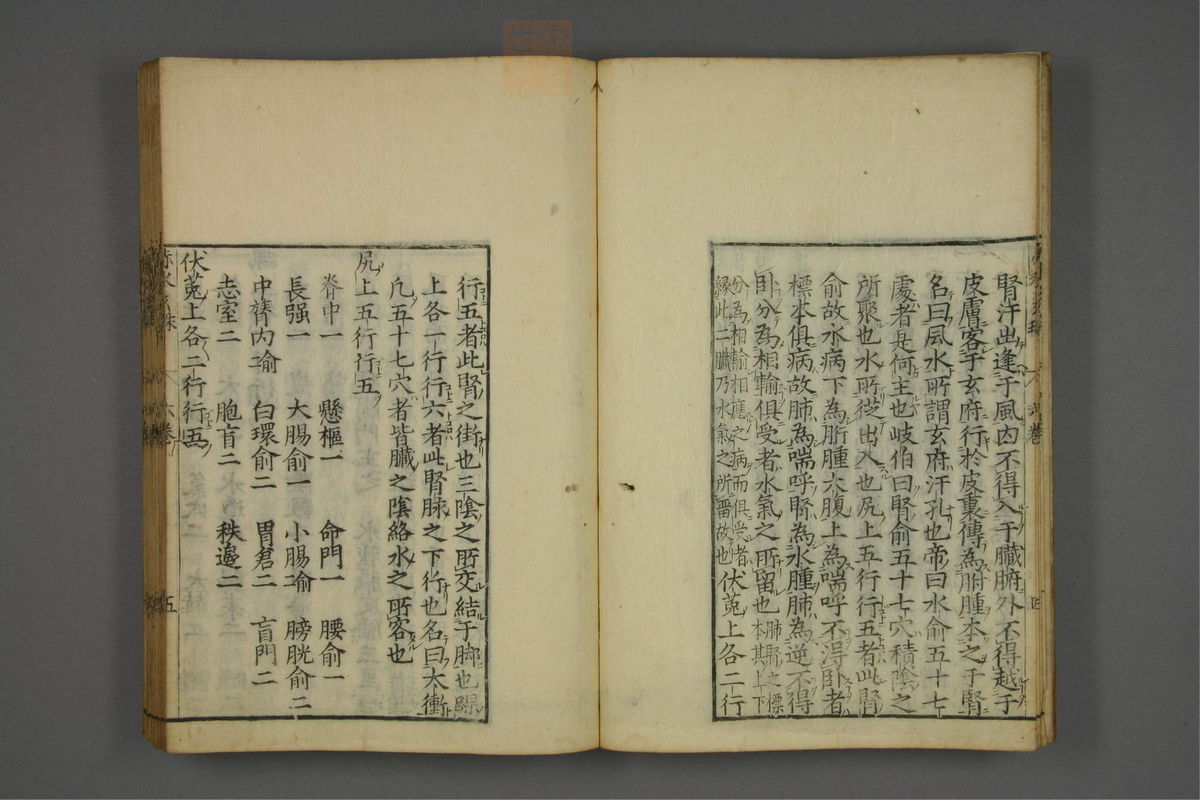 腎汗出逢于風内不得入于臓腑外不得越于
皮膚客于玄府行於皮裏傳為胕腫本之于腎
名曰風水所謂玄府汗孔也帝曰水俞五十七
處者是何主也岐伯曰腎俞五十七穴積陰之
所聚也水所從出入也尻上五行行五者此腎
俞故水病下為胻腫大腹上為喘呼不得卧者
標本俱病故肺為喘呼腎為水腫肺為逆不得
卧分為相輸俱受者水氣之所留也
肺腎之標本其上下
分為相輸相應之病而俱受者
縁此二臓乃水氣之所畱故也
伏菟上各二行
行五者此腎之街也三陰之所交結于脚也踝
上各一行行六者此腎脉之下行也名曰太衝
凢五十七穴者皆臓之陰絡水之所客也
尻上五行行五
脊中一 懸樞一 命門一 腰俞一
長强一 大膓俞一 小膓瑜 膀胱俞二
中膂内瑜 白環俞二 胃倉二 肓門二
志室二 胞肓二 秩邊二
伏菟上各二行行五
赤水玄珠 六卷 五